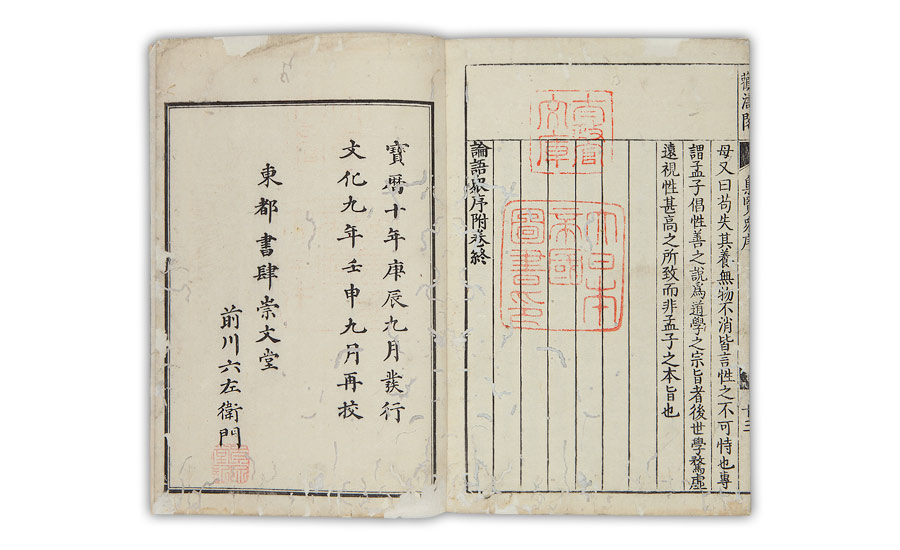 集覽衆序
十三
母又曰苟失其養無物不消皆言性之不可恃也專
謂孟子倡性善之說爲道學之宗旨者後世學騖虛
遠視性甚高之所致而非孟子之本旨也
太政官
文庫
大日本
帝國
圖書印
論語衆序附卷終
寶曆十年庚辰九月發行
文化九年壬申九月再校
東都書肆崇文堂
前川六左衛門